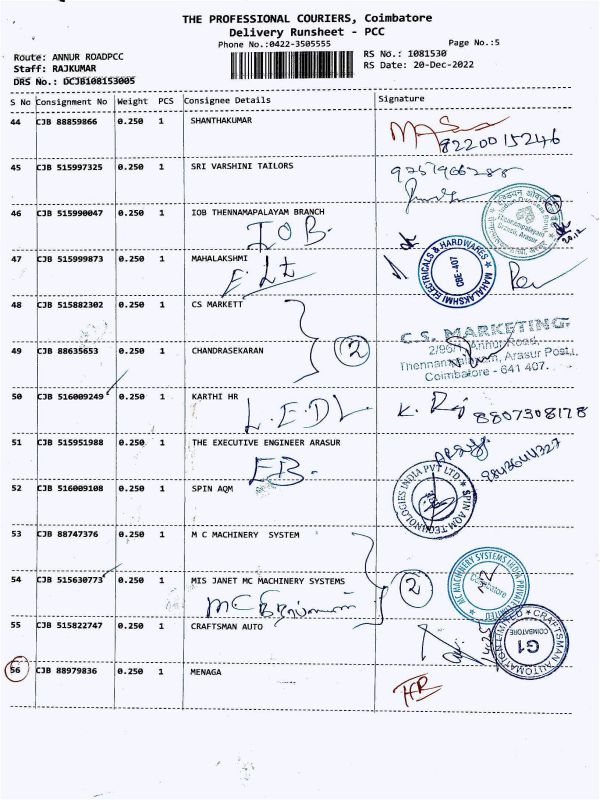 THE PROFESSIONAL COURIERS, Coimbatore
Delivery Runsheet - PCC
Phone No.:0422-3505555
Page No.:5
Route: ANNUR ROADPCC
RS No.: 1081530
Staff: RAJKUMAR
RS Date: 20-Dec-2022
DRS No.: DCJB108153005
S No Consignment No Weight PCS Consignee Details Signature
44 CJB 88859866 0.250 1 SHANTHAKUMAR
8220015246
45 CJB 515997325 0.250 1 SRI VARSHINI TAILORS
46 CJB 515990047 0.250 1 IOB THENNAMAPALAYAM BRANCH
IOB.
47 CJB 515999873 0.250 1 MAHALAKSHMI
MAHALAKSHMI ELECTRICALS & HARDWARES
CBE-407
48 CJB 515882302 0.250 1 CS MARKETT
C.S. MARKETING.
2
49 CJB 88635653 0.250 1 CHANDRASEKARAN
Annur Road,
Arasur Post,
Coimbatore - 641 407.
50 CJB 516009249 0.250 1 KARTHI HR
K. Raj 8807308178
51 CJB 515951988 0.250 1 THE EXECUTIVE ENGINEER ARASUR
EB.
9843644327
52 CJB 516009108 0.250 1 SPIN AQM
SPIN AQM TECHNOLOGIES INDIA PVT LTD
53 CJB 88747376 0.250 1 M C MACHINERY SYSTEM
54 CJB 515630773 0.250 1 MIS JANET MC MACHINERY SYSTEMS
2
MC MACHINERY SYSTEMS INDIA PRIVATE LIMITED
Coimbatore
55 CJB 515822747 0.250 1 CRAFTSMAN AUTO
CRAFTSMAN AUTOMATION LIMITED
COIMBATORE
G1
56 CJB 88979836 0.250 1 MENAGA
HR